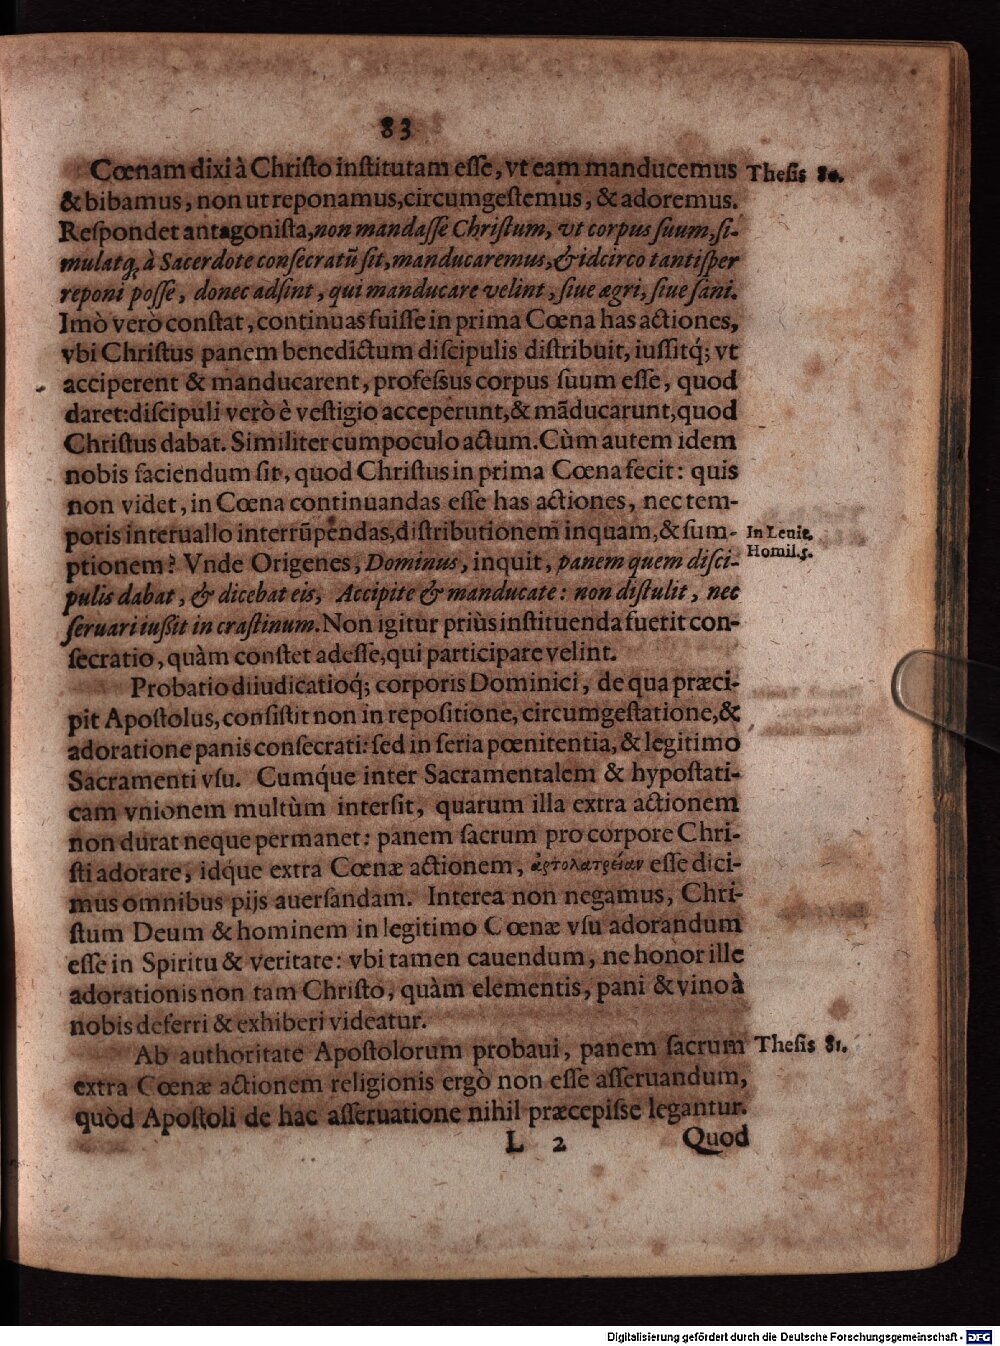 83
Cœnam dixi à Christo institutam esse, vt eam manducemus
Thesis 80.
& bibamus, non ut reponamus, circumgestemus, & adoremus.
Respondet antagonista, non mandasse Christum, vt corpus suum, si-
mulatq; à Sacerdote consecratũ sit, manducaremus, & idcirco tantisper
reponi posse, donec adsint, qui manducare velint, siue ægri, siue sani.
Imò verò constat, continuas fuisse in prima Cœna has actiones,
vbi Christus panem benedictum discipulis distribuit, iussitq́; vt
acciperent & manducarent, professus corpus suum esse, quod
daret: discipuli verò è vestigio acceperunt, & mãducarunt, quod
Christus dabat. Similiter cum poculo actum. Cùm autem idem
nobis faciendum sit, quod Christus in prima Cœna fecit: quis
non videt, in Cœna continuandas esse has actiones, nec tem-
poris interuallo interrũpendas, distributionem inquam, & sum-
In Leuit.
ptionem? Vnde Origenes, Dominus, inquit, panem quem disci-
Homil. 5.
pulis dabat, & dicebat eis, Accipite & manducate: non distulit, nec
seruari iußit in crastinum. Non igitur priùs instituenda fuerit con-
secratio, quàm constet adesse, qui participare velint.
Probatio diiudicatioq́; corporis Dominici, de qua præci-
pit Apostolus, consistit non in repositione, circumgestatione, &
adoratione panis consecrati: sed in seria pœnitentia, & legitimo
Sacramenti vsu. Cumq́ue inter Sacramentalem & hypostati-
cam vnionem multùm intersit, quarum illa extra actionem
non durat neque permanet: panem sacrum pro corpore Chri-
sti adorare, idq́ue extra Cœnæ actionem, ἀρτολατρείαν esse dici-
mus omnibus pijs auersandam. Interea non negamus, Chri-
stum Deum & hominem in legitimo Cœnæ vsu adorandum
esse in Spiritu & veritate: vbi tamen cauendum, ne honor ille
adorationis non tam Christo, quàm elementis, pani & vino à
nobis deferri & exhiberi videatur.
Ab authoritate Apostolorum probaui, panem sacrum
Thesis 81.
extra Cœnæ actionem religionis ergò non esse asseruandum,
quòd Apostoli de hac asseruatione nihil præcepisse legantur.
L 2 Quod
Digitalisierung gefördert durch die Deutsche Forschungsgemeinschaft - DFG